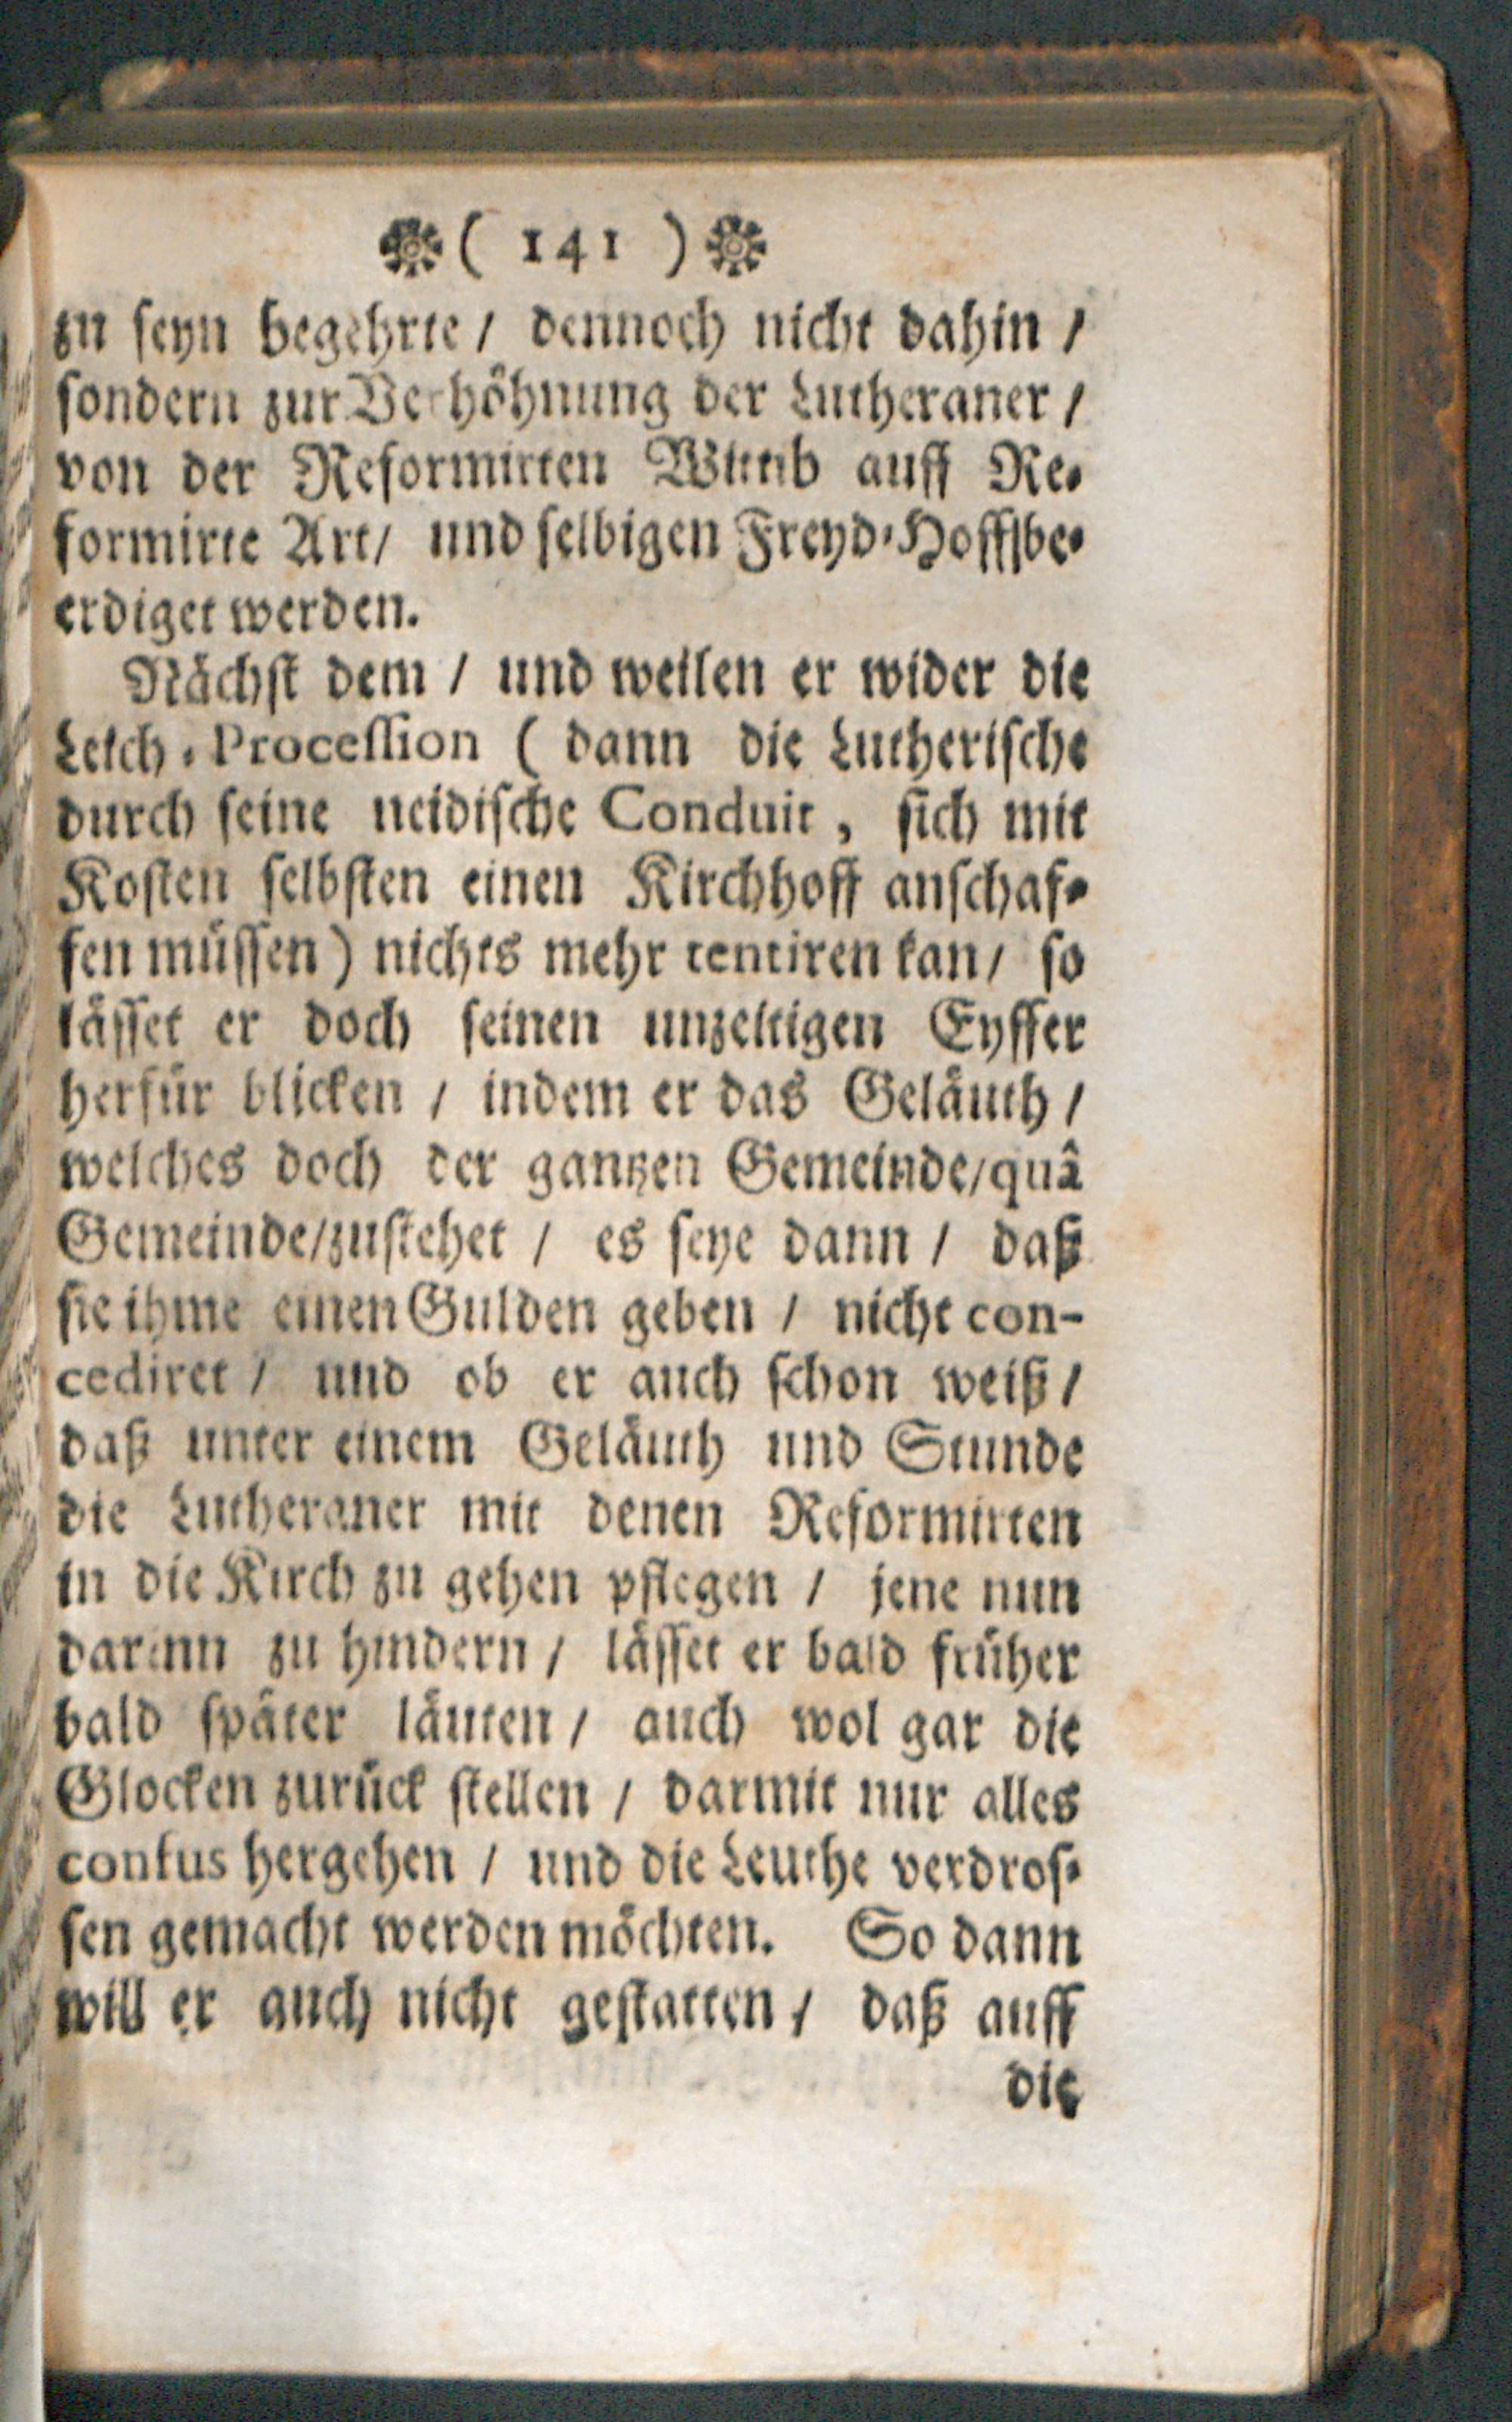 ( 141 )
zu seyn begehrte / dennoch nicht dahin /
sondern zur Verhöhnung der Lutheraner /
von der Reformirten Wittib auff Re-
formirte Art / und selbigen Freyd-Hoff be-
erdiget werden.
Nächst dem / und weilen er wider die
Leich-Procession ( dann die Lutherische
durch seine neidische Conduit, sich mit
Kosten selbsten einen Kirchhoff anschaf-
fen müssen ) nichts mehr tentiren kan / so
lässet er doch seinen unzeitigen Eyffer
herfür blicken / indem er das Geläuth /
welches doch der gantzen Gemeinde / quâ
Gemeinde / zustehet / es seye dann / daß
sie ihme einen Gulden geben / nicht con-
cediret / und ob er auch schon weiß /
daß unter einem Geläuth und Stunde
die Lutheraner mit denen Reformirten
in die Kirch zu gehen pflegen / jene nun
darinn zu hindern / lässet er bald früher
bald später läuten / auch wol gar die
Glocken zurück stellen / darmit nur alles
confus hergehen / und die Leuthe verdros-
sen gemacht werden möchten. So dann
will er auch nicht gestatten / daß auff
die